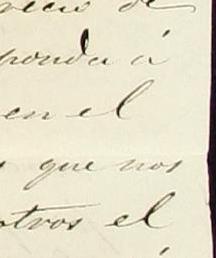 recio de
ponda á
en el
que nos
otros el